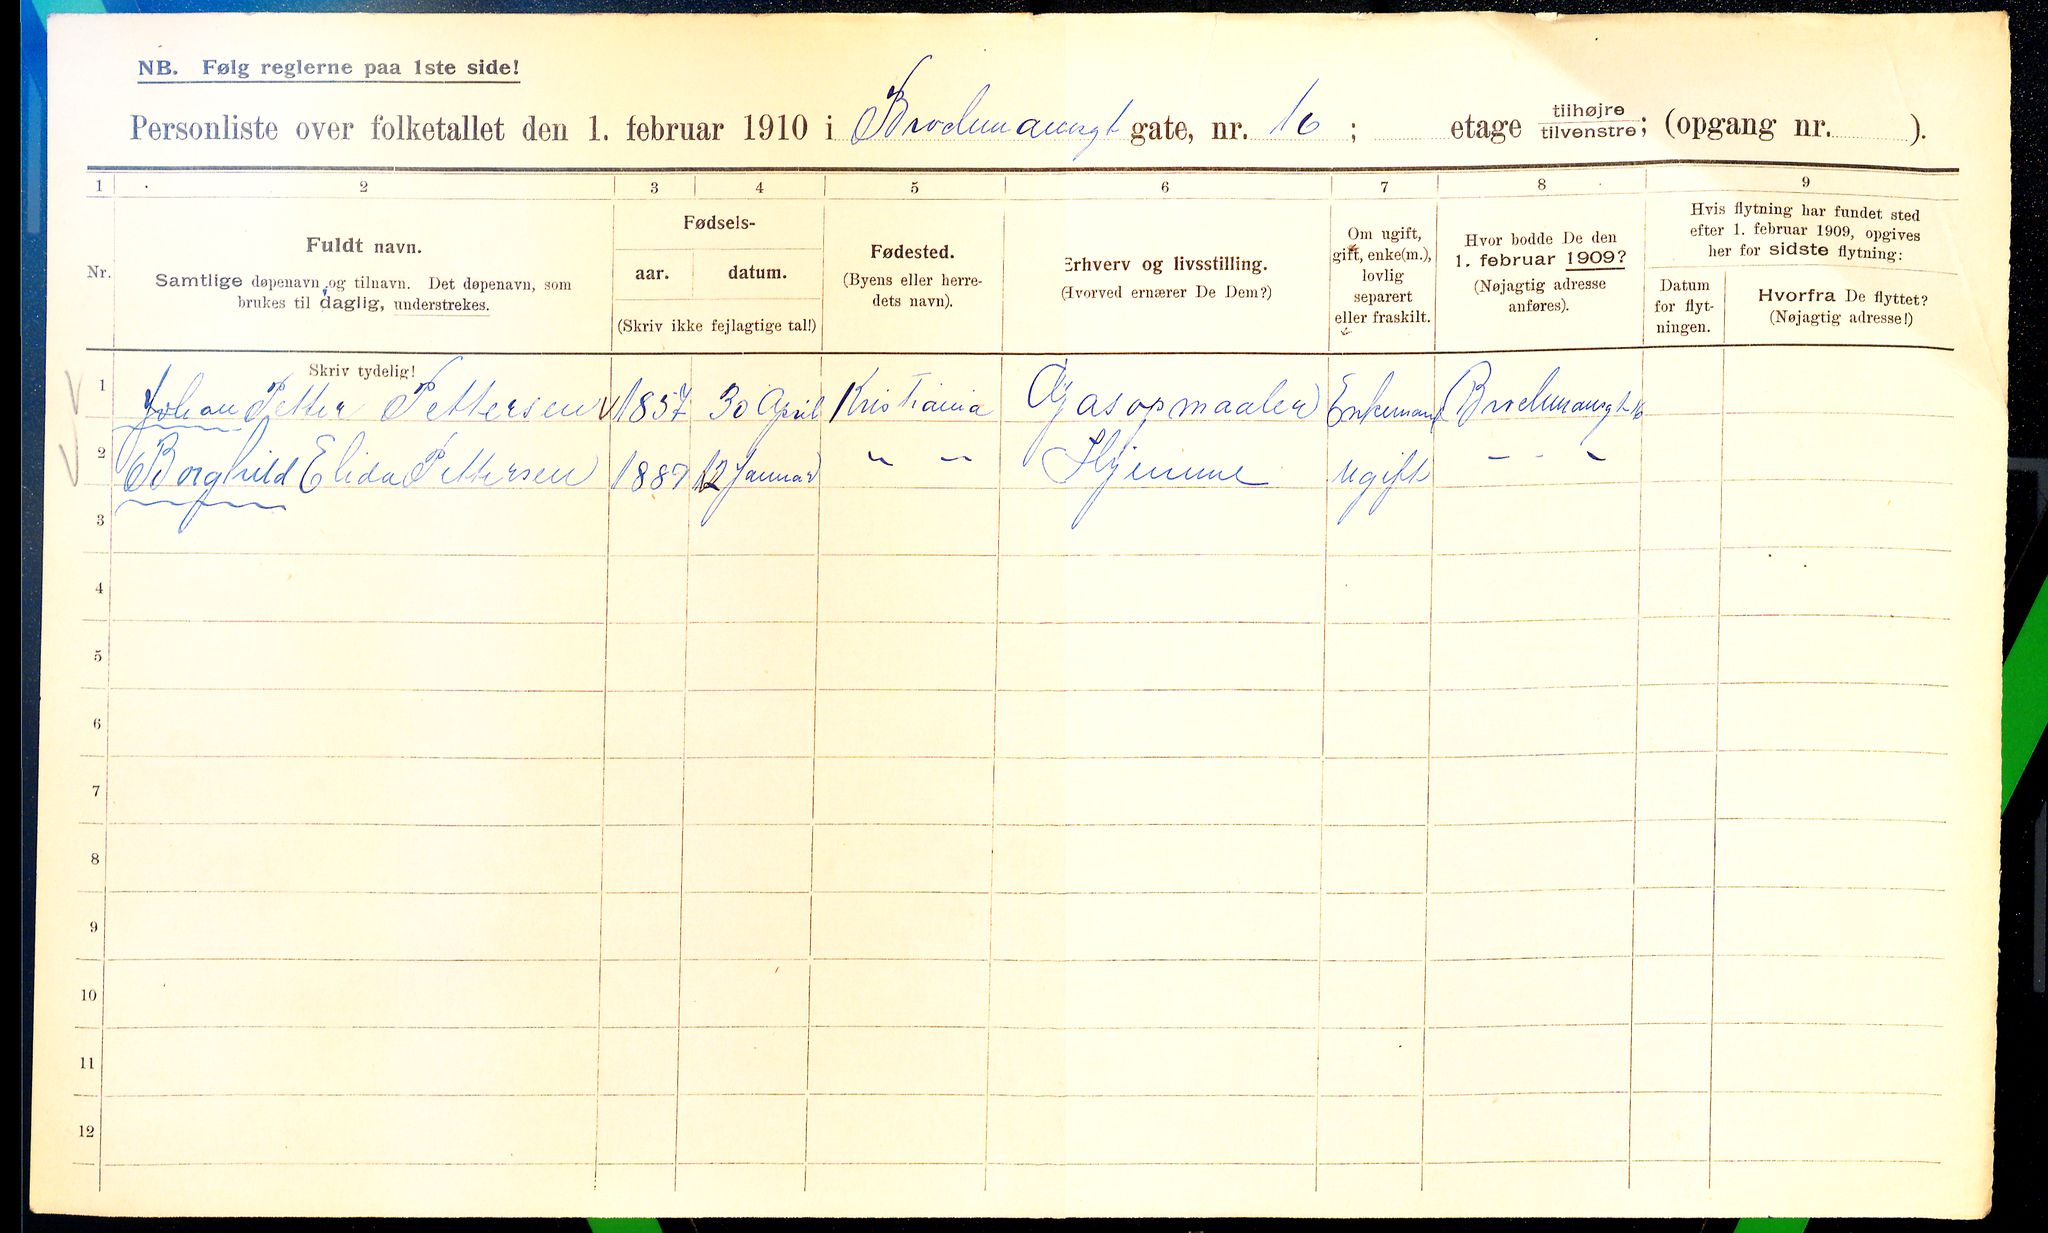 NB. Følg reglerne paa 1ste side!
Personliste over folketallet den 1. februar 1910 i Brochmannsgt gate, nr. 16 ; etage tilhøjre tilvenstre; (opgang nr. ).
1 2 3 4 5 6 7 8 9
Nr.
Fuldt navn.
Samtlige døpenavn og tilnavn. Det døpenavn, som
brukes til daglig, understrekes.
Fødsels-
aar. datum.
(Skriv ikke fejlagtige tal!)
Fødested.
(Byens eller herre-
dets navn).
Erhverv og livsstilling.
(Hvorved ernærer De Dem?)
Om ugift,
gift, enke(m.),
lovlig
separert
eller fraskilt.
Hvor bodde De den
1. februar 1909?
(Nøjagtig adresse
anføres).
Hvis flytning har fundet sted
efter 1. februar 1909, opgives
her for sidste flytning:
Datum
for flyt-
ningen.
Hvorfra De flyttet?
(Nøjagtig adresse!)
Skriv tydelig!
1 Johan Petter Pettersen 1857 30 April Kristiania Gasopmaaler Enkemand Brochmannsgt 16
2 Borghild Elida Pettersen 1887 12 Januar " " Hjemme ugift - - -
3
4
5
6
7
8
9
10
11
12